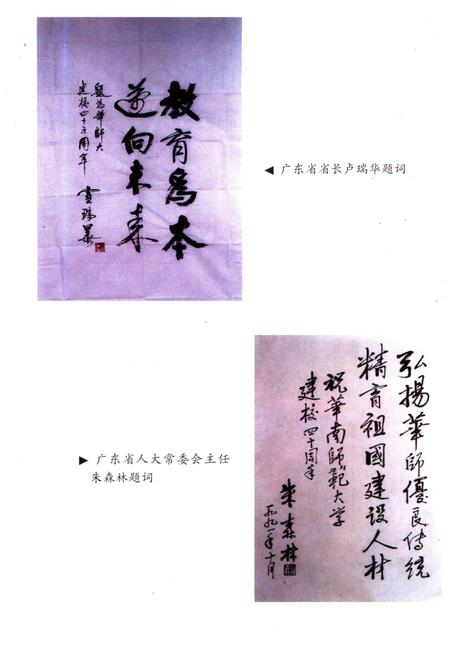 教育爲本
向未来
華師大
建校四十五周年
盧瑞華
◀ 广东省省长卢瑞华题词
弘揚華師優良传统
精育祖國建设人材
祝華南師範大学
建校四十周年
朱森林
一九九一年十月
▶ 广东省人大常委会主任
朱森林题词